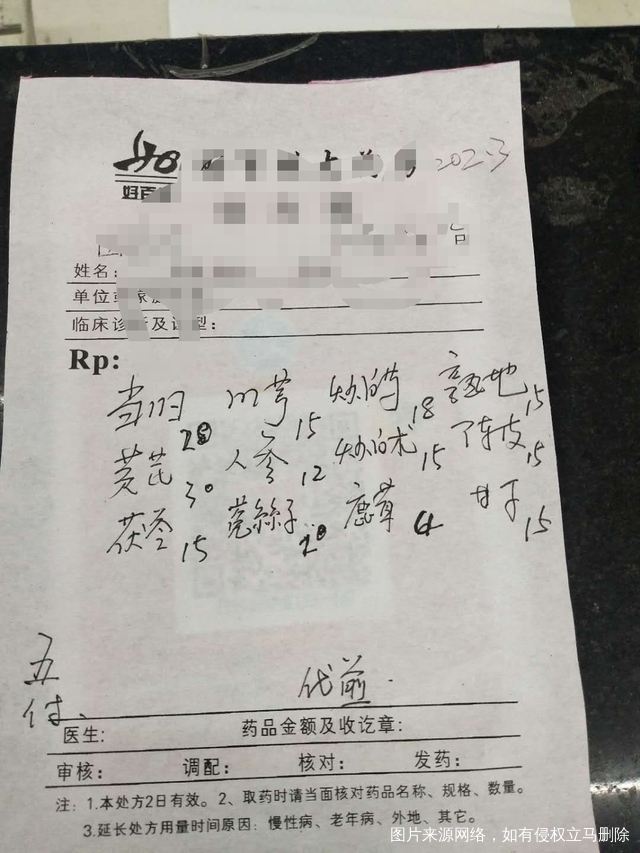 202.3
好百
台
姓名:
单位或
临床诊断及证型:
Rp:
当归 20 川芎 15 炒白芍 18 熟地 15
黄芪 30 人参 12 炒白术 15 陈皮 15
茯苓 15 菟絲子 20 鹿茸 4 甘草 15
五付、
代煎.
医生: 药品金额及收讫章:
审核: 调配: 核对: 发药:
注: 1.本处方2日有效。2、取药时请当面核对药品名称、规格、数量。
3.延长处方用量时间原因: 慢性病、老年病、外地、其它。
图片来源网络，如有侵权立马删除